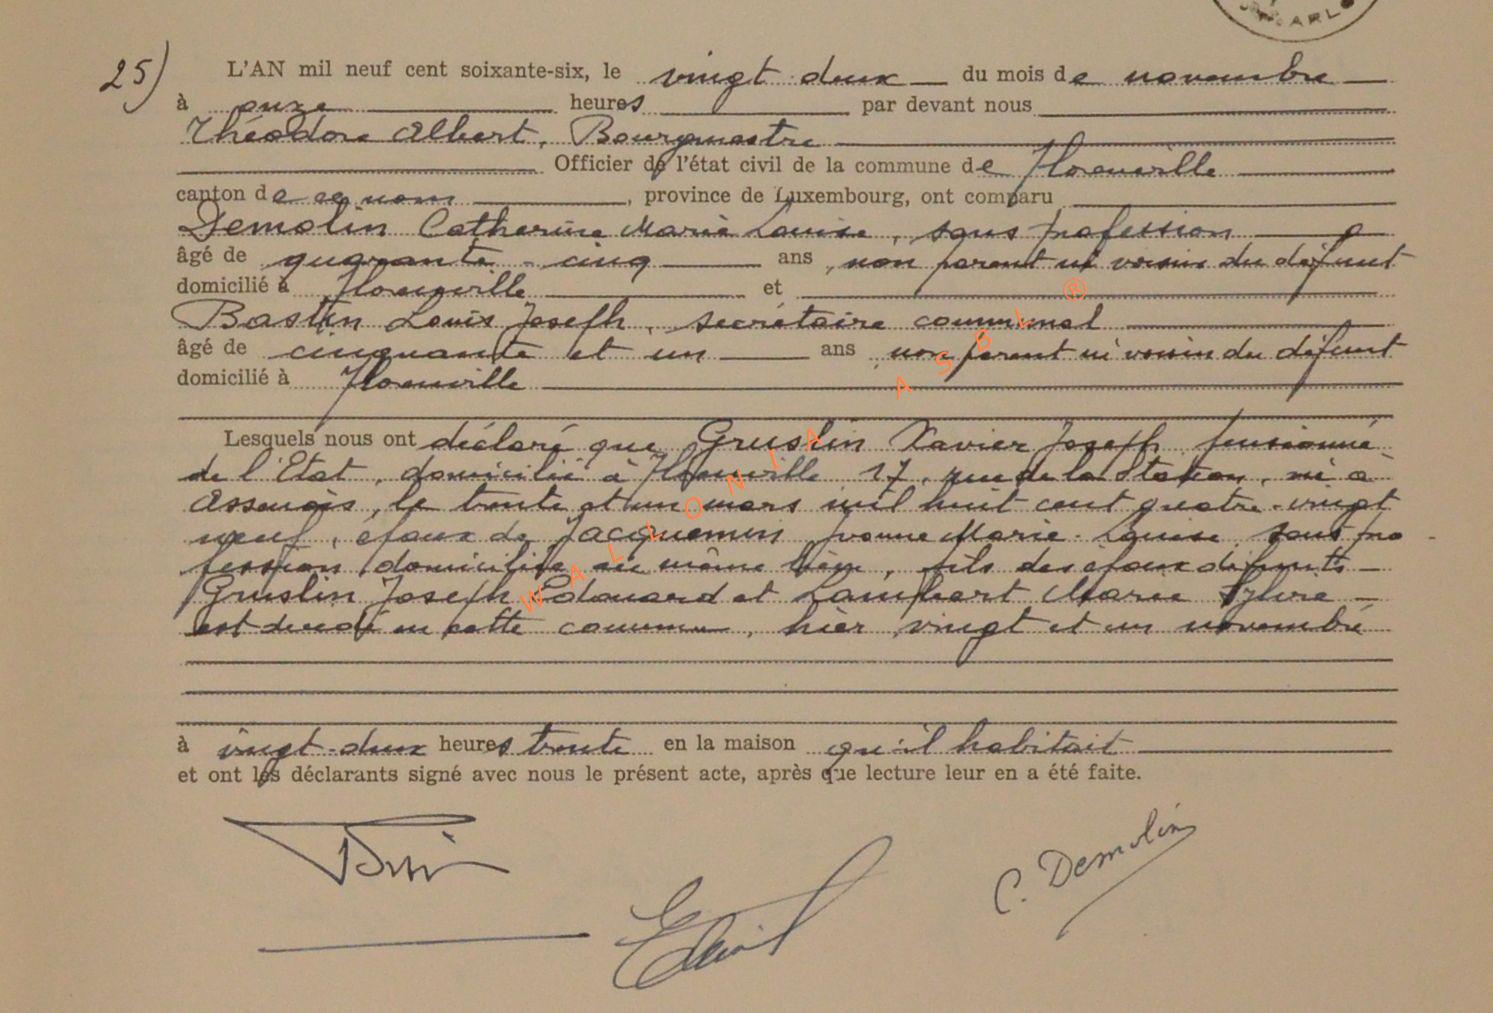 ARLO
25) L'AN mil neuf cent soixante-six, le vingt deux du mois de novembre
à onze heures par devant nous
Théodore Albert, Bourgmestre
Officier de l'état civil de la commune de Florenville
canton de ce nom, province de Luxembourg, ont comparu
Demolin Catherine Marie Louise, sans profession
âgé de quarante-cinq ans, non parent ni voisin du défunt
domicilié à Florenville et
Bastin Louis Joseph, secrétaire communal
âgé de cinquante et un ans non parent ni voisin du défunt
domicilié à Florenville
Lesquels nous ont déclaré que Gruslin Xavier Joseph, pensionné
de l'Etat, domicilié à Florenville 17, rue de la Station, né à
Assenois, le trente et un mars mil huit cent quatre-vingt
neuf, époux de Jacquemin Yvonne Marie-Louise, sans pro
fession domiciliée au même lieu, fils des époux défunts
Gruslin Joseph Edouard et Lambert Marie Sylvie
est décédé en cette commune, hier vingt et un novembre
à vingt-deux heures trente en la maison qu'il habitait
et ont les déclarants signé avec nous le présent acte, après que lecture leur en a été faite.
C. Demolin
WALLONIA ASBL ®